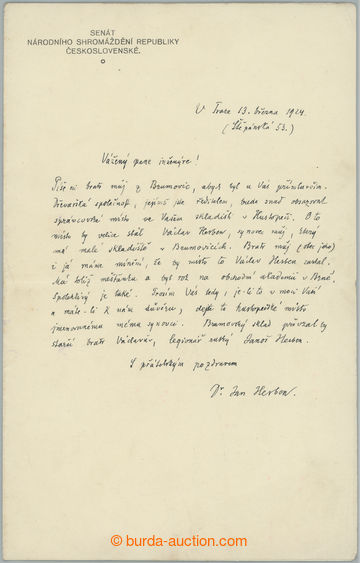 SENÁT
NÁRODNÍHO SHROMÁŽDĚNÍ REPUBLIKY
ČESKOSLOVENSKÉ.
V Praze 13. března 1924.
(Štěpánská 53.)
Vážený pane inženýre!
Píše mi bratr můj z Brumovic, abych byl u Vás přímluvčím.
společnost, jejímž jste ředitelem, bude snad obsazovat
správcovské místo ve Vašem skladišti v Hustopeči. O to
místo by velice stál Václav Herben, synovec můj, který
má malé skladiště v Brumovicích. Bratr můj (otec jeho)
i já máme mínění, že by místo to Václav Herben zastal.
Má totiž měšťanku a byl rok na obchodní akademii v Brně.
Spolehlivý je také. Prosím Vás tedy, je-li to v moci Vaší
a máte-li k nám důvěru, dejte to hustopečské místo
jmenovanému mému synovci. Brumovský sklad převzal by
starší bratr Václavův, legionář ruský Herben.
S přátelským pozdravem
Dr. Jan Herben.
© burda-auction.com